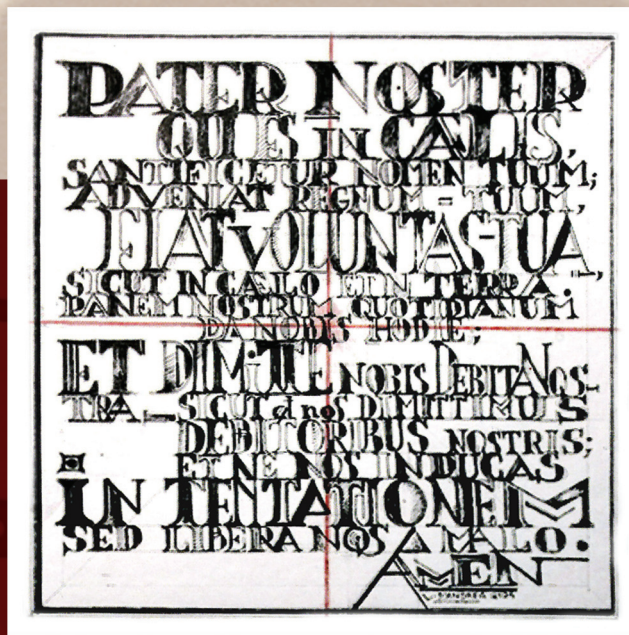 PATER NOSTER
QUI ES IN CÆLIS,
SANTIFICETUR NOMEN TUUM;
ADVENIAT REGNUM - TUUM,
FIAT VOLUNTAS-TUA,
SICUT IN CÆLO ET IN TERRA.
PANEM NOSTRUM QUOTIDIANUM
DA NOBIS HODIE;
ET DIMITTE NOBIS DEBITA NOS-
TRA_ SICUT et nos DIMITTIMUS
DEBITORIBUS NOSTRIS;
ET NE NOS INDUCAS
IN TENTATIONEM
SED LIBERA NOS A MALO.
AMEN